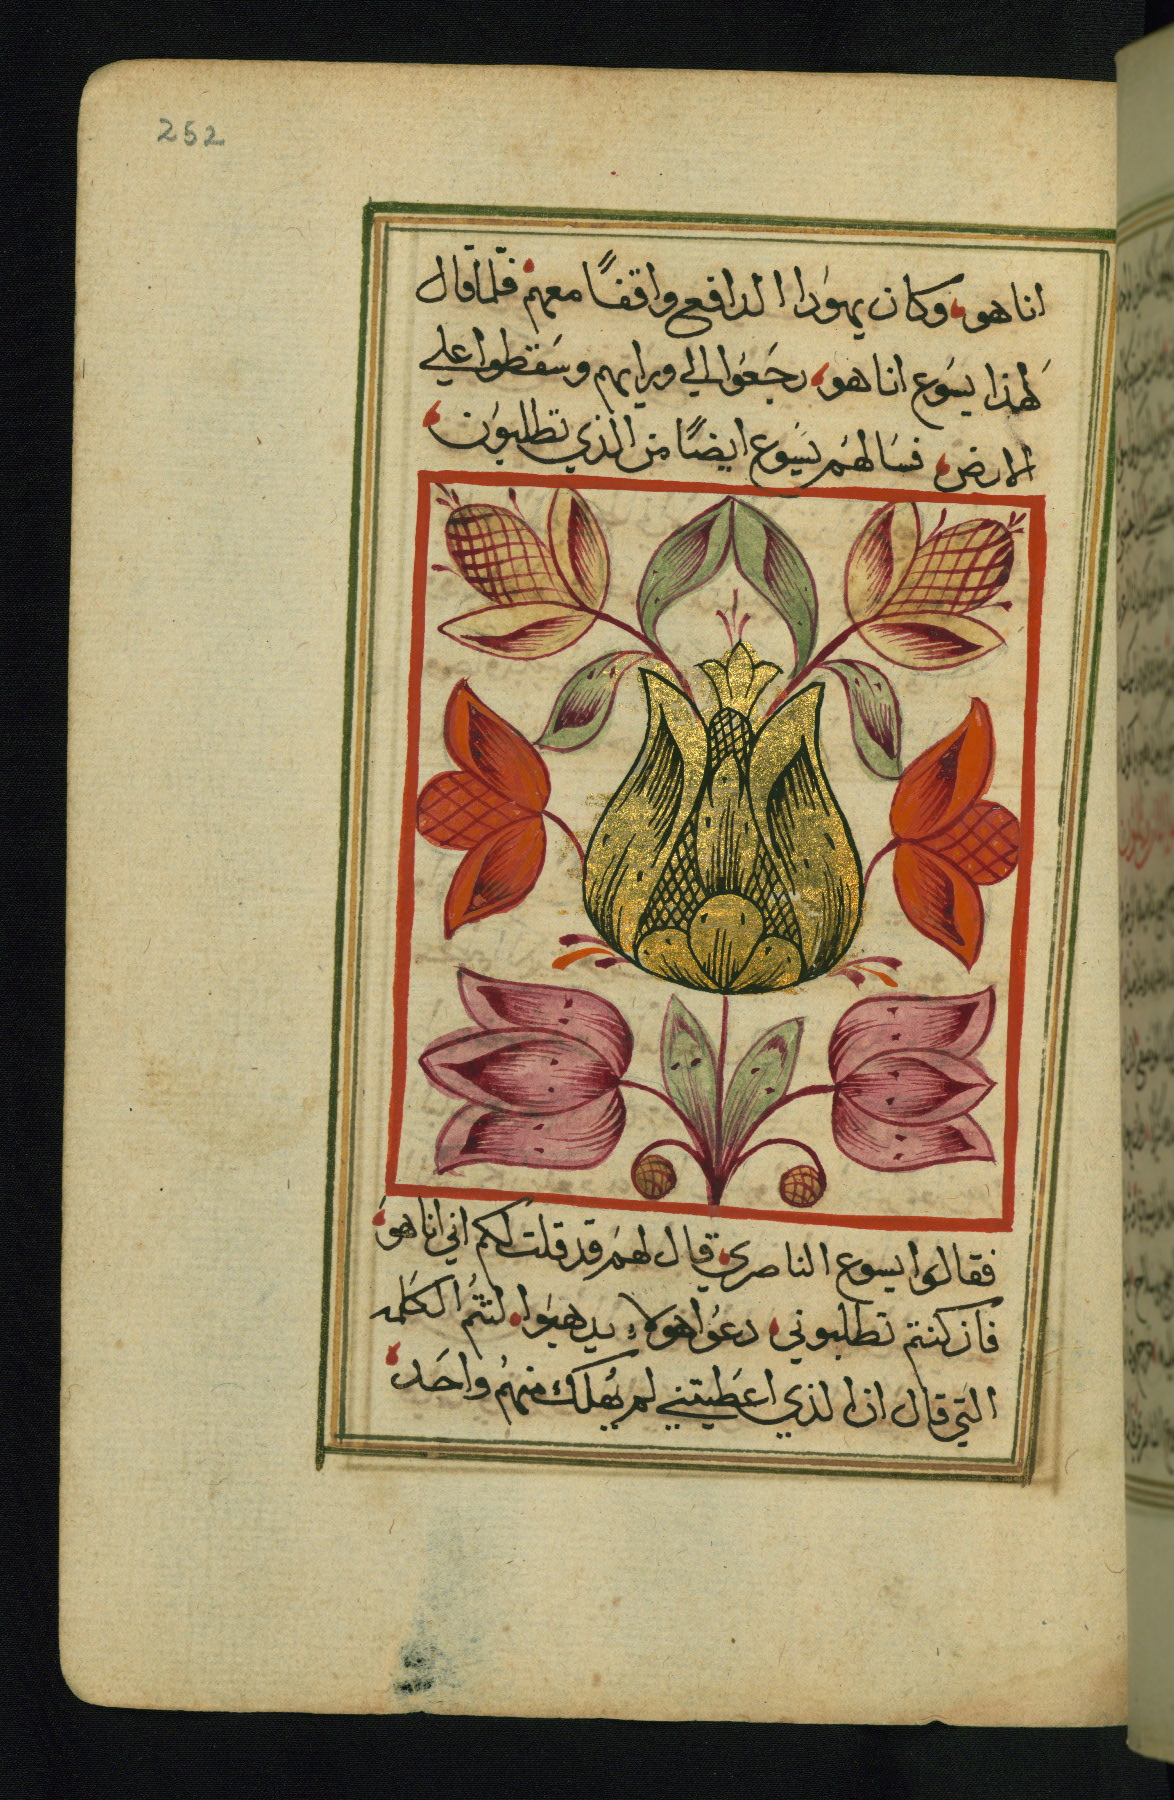 252
انا هو، وكان يهودا الدافع واقفًا معهم فلما قال
لهذا يسوع انا هو، رجعوا الي ورايهم وسقطوا علي
الارض، فسالهم يسوع ايضًا من الذي تطلبون
فقالوا يسوع الناصري، قال لهم قد قلت لكم اني انا هو
فان كنتم تطلبوني، دعوا هولاء يدهبوا، لتتم الكلمه
التي قال ان الذي اعطيتني لم يهلك منهم واحد